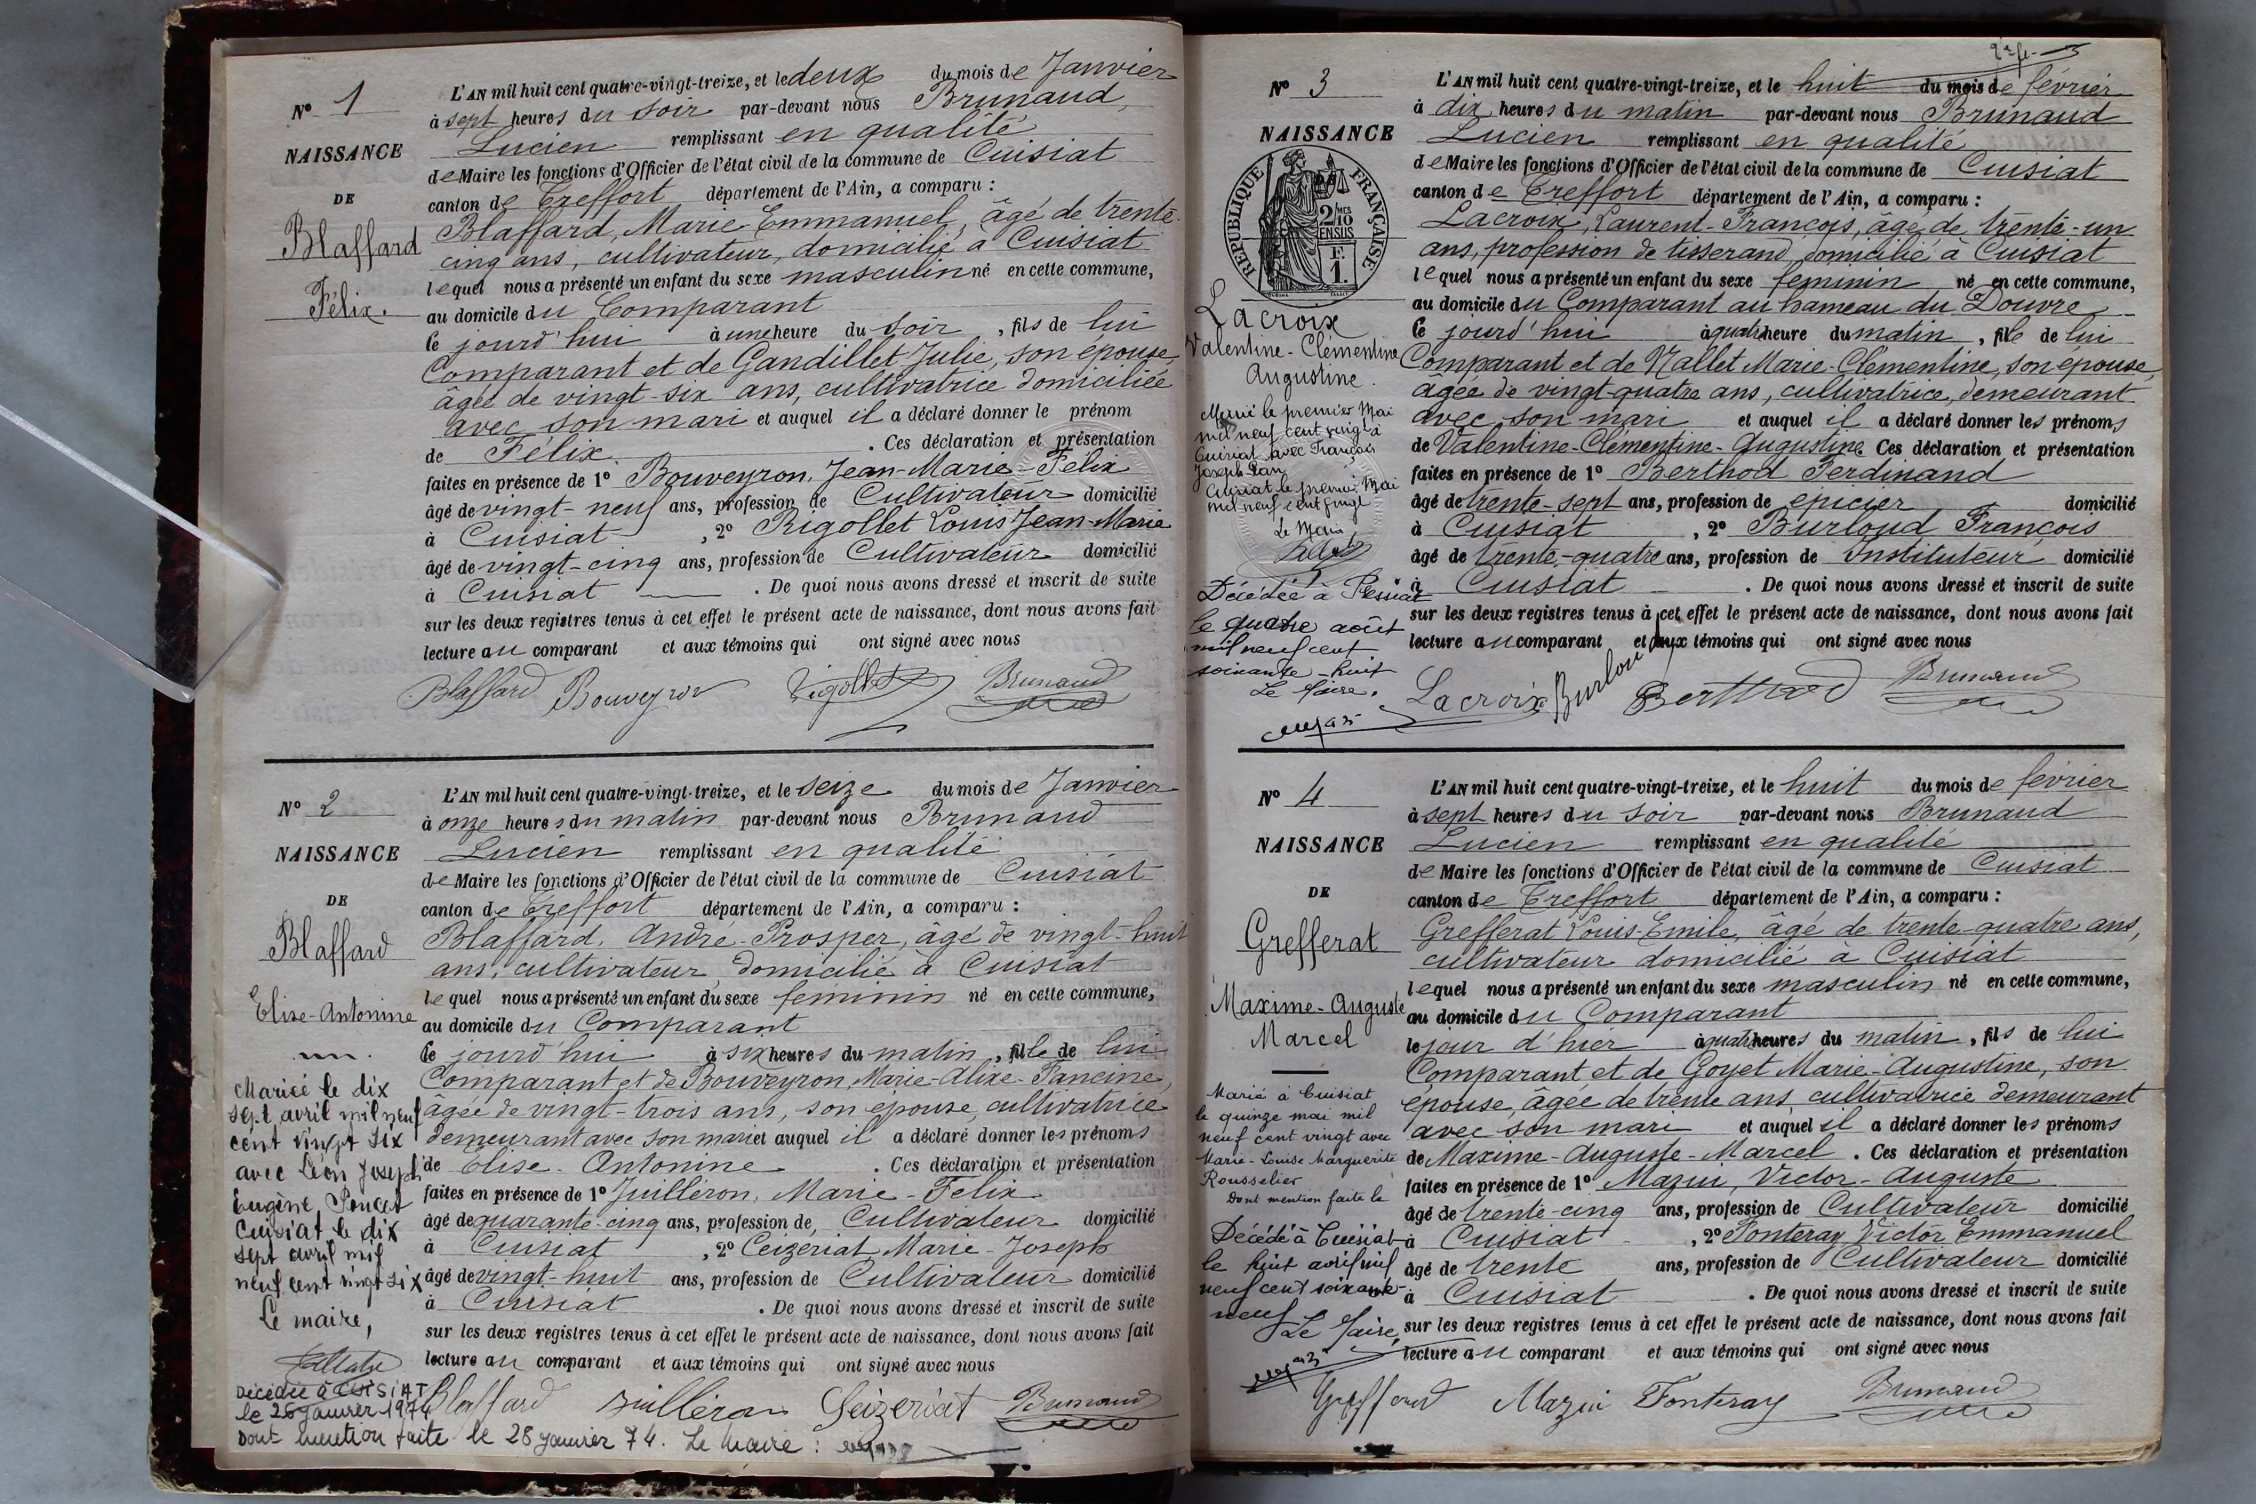 N° 1
NAISSANCE
DE
Blaffard
Félix.
L'AN mil huit cent quatre-vingt-treize, et le deux du mois de Janvier
à sept heures du soir par-devant nous Brunaud,
Lucien remplissant en qualité
de Maire les fonctions d'Officier de l'état civil de la commune de Cuisiat
canton de Treffort département de l'Ain, a comparu :
Blaffard, Marie-Emmanuel, âgé de trente-
cinq ans, cultivateur, domicilié à Cuisiat
lequel nous a présenté un enfant du sexe masculin né en cette commune,
au domicile du Comparant
Ce jourd'hui à une heure du soir, fils de lui
Comparant et de Gandillet Julie, son épouse,
âgée de vingt-six ans, cultivatrice domiciliée
avec son mari et auquel il a déclaré donner le prénom
de Félix. Ces déclaration et présentation
faites en présence de 1° Bouveyron, Jean-Marie-Félix
âgé de vingt-neuf ans, profession de Cultivateur domicilié
à Cuisiat, 2° Rigollet Louis Jean-Marie
âgé de vingt-cinq ans, profession de Cultivateur domicilié
à Cuisiat. De quoi nous avons dressé et inscrit de suite
sur les deux registres tenus à cet effet le présent acte de naissance, dont nous avons fait
lecture au comparant et aux témoins qui ont signé avec nous
Blaffard Bouveyron Rigollet Brunaud
N° 2
NAISSANCE
DE
Blaffard
Elise-Antonine
Mariée le dix
sept avril mil neuf
cent vingt six
avec Léon Joseph
Eugène Poncet
Cuisiat le dix
sept avril mil
neuf cent vingt six
Le maire,
Décédée à CUISIAT
le 26 janvier 1974
Dont mention faite le 28 janvier 74. Le Maire :
L'AN mil huit cent quatre-vingt-treize, et le seize du mois de Janvier
à onze heures du matin par-devant nous Brunaud
Lucien remplissant en qualité
de Maire les fonctions d'Officier de l'état civil de la commune de Cuisiat
canton de Treffort département de l'Ain, a comparu :
Blaffard, André-Prosper, âgé de vingt-huit
ans, cultivateur domicilié à Cuisiat
lequel nous a présenté un enfant du sexe féminin né en cette commune,
au domicile du Comparant
Ce jourd'hui à six heures du matin, fille de lui
Comparant et de Bouveyron, Marie-Alixe-Francine,
âgée de vingt-trois ans, son épouse, cultivatrice
demeurant avec son mari et auquel il a déclaré donner les prénoms
de Elise-Antonine. Ces déclaration et présentation
faites en présence de 1° Juilléron, Marie-Félix
âgé de quarante-cinq ans, profession de Cultivateur domicilié
à Cuisiat, 2° Ceizériat Marie-Joseph
âgé de vingt-huit ans, profession de Cultivateur domicilié
à Cuisiat. De quoi nous avons dressé et inscrit de suite
sur les deux registres tenus à cet effet le présent acte de naissance, dont nous avons fait
lecture au comparant et aux témoins qui ont signé avec nous
Blaffard Juilléron Ceizériat Brunaud
N° 3
NAISSANCE
RÉPUBLIQUE FRANÇAISE
2/10 MES
EN SUS
F.
1.
Lacroix
Valentine-Clémentine
Augustine.
Marié le premier Mai
mil neuf cent vingt à
Cuisiat avec François
Joseph
Cuisiat le premier Mai
mil neuf cent vingt
Le Maire
Décédée à
le quatre août
mil neuf cent
soixante-huit
Le Maire.
L'AN mil huit cent quatre-vingt-treize, et le huit du mois de février
à dix heures du matin par-devant nous Brunaud
Lucien remplissant en qualité
de Maire les fonctions d'Officier de l'état civil de la commune de Cuisiat
canton de Treffort département de l'Ain, a comparu :
Lacroix, Laurent-François, âgé de trente-un
ans, profession de tisserand, domicilié à Cuisiat
lequel nous a présenté un enfant du sexe féminin né en cette commune,
au domicile du Comparant au hameau du Douvre
Ce jourd'hui à quatre heure du matin, fille de lui
Comparant et de Nallet Marie-Clémentine, son épouse,
âgée de vingt-quatre ans, cultivatrice, demeurant
avec son mari et auquel il a déclaré donner les prénoms
de Valentine-Clémentine-Augustine. Ces déclaration et présentation
faites en présence de 1° Berthod Ferdinand
âgé de trente-sept ans, profession de épicier domicilié
à Cuisiat, 2° Burloud François
âgé de trente-quatre ans, profession de Instituteur domicilié
à Cuisiat. De quoi nous avons dressé et inscrit de suite
sur les deux registres tenus à cet effet le présent acte de naissance, dont nous avons fait
lecture au comparant et aux témoins qui ont signé avec nous
Lacroix Burloud Berthod Brunaud
N° 4
NAISSANCE
DE
Grefferat
Maxime-Auguste
Marcel
Marié à Cuisiat
le quinze mai mil
neuf cent vingt avec
Marie-Louise Marguerite
Rousselier
Dont mention faite le
Décédé à Cuisiat
le huit avril mil
neuf cent soixante-
neuf
Le Maire,
L'AN mil huit cent quatre-vingt-treize, et le huit du mois de février
à sept heures du soir par-devant nous Brunaud
Lucien remplissant en qualité
de Maire les fonctions d'Officier de l'état civil de la commune de Cuisiat
canton de Treffort département de l'Ain, a comparu :
Grefferat Louis-Emile, âgé de trente-quatre ans,
cultivateur domicilié à Cuisiat
lequel nous a présenté un enfant du sexe masculin né en cette commune,
au domicile du Comparant
le jour d'hier à quatre heures du matin, fils de lui
Comparant et de Goyet Marie-Augustine, son
épouse, âgée de trente ans, cultivatrice demeurant
avec son mari et auquel il a déclaré donner les prénoms
de Maxime-Auguste-Marcel. Ces déclaration et présentation
faites en présence de 1° Mazui, Victor-Auguste
âgé de trente-cinq ans, profession de Cultivateur domicilié
à Cuisiat, 2° Fonteray Victor Emmanuel
âgé de trente ans, profession de Cultivateur domicilié
à Cuisiat. De quoi nous avons dressé et inscrit de suite
sur les deux registres tenus à cet effet le présent acte de naissance, dont nous avons fait
lecture au comparant et aux témoins qui ont signé avec nous
Grefferat Mazui Fonteray Brunaud